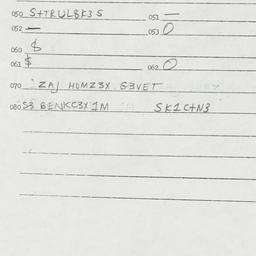 050 S+TRUL8K3 S 051 —
052 — 053 O
060 $
061 $ 062 O
070 ZAJ HOMZ3X G3VET
080 S3 BENKC3X 1M SK1C+N3